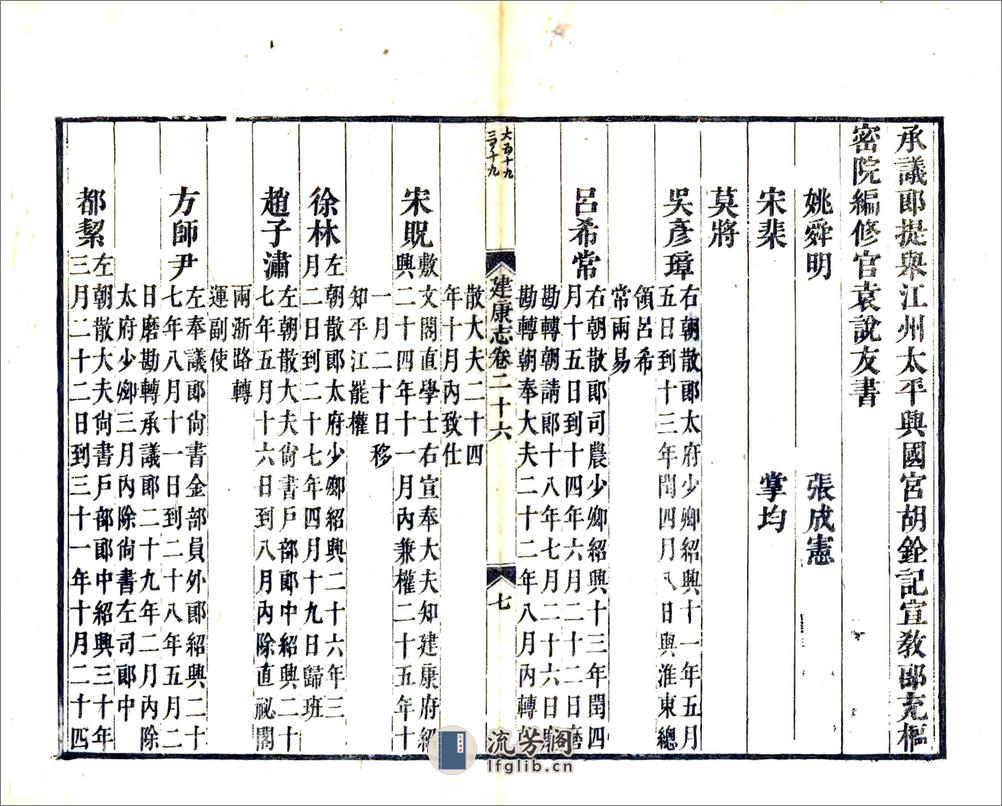 承議郎提舉江州太平興國宮胡銓記宣敎郎充樞
密院編修官袁說友書
姚舜明 張成憲
宋棐 掌均
莫將
吳彥璋右朝散郎太府少卿紹興十一年五月
五日到十三年閏四月八日與淮東總
領呂希
常兩易
呂希常右朝散郎司農少卿紹興十三年閏四
月十五日到十四年六月二十二日磨
勘轉朝請郎十八年七月二十六日磨
勘轉朝奉大夫二十二年八月內轉朝
散大夫二十四
年十月內致仕
大百十九
三百十九
建康志卷二十六
七
宋貺敷文閣直學士右宣奉大夫知建康府紹
興二十四年十一月內兼權二十五年十
一月二十日移
知平江罷權
徐林左朝散郎太府少卿紹興二十六年三
月二日到二十七年四月十九日歸班
趙子潚左朝散大夫尙書戶部郎中紹興二十
七年五月十六日到八月內除直祕閣
兩浙路轉
運副使
方師尹左奉議郎尙書金部員外郎紹興二十
七年八月十一日到二十八年五月二
日磨勘轉承議郎二十九年二月內除
太府少卿三月內除尙書左司郎中
都絜左朝散大夫尙書戶部郎中紹興三十年
三月二十二日到三十一年十月二十四
流芳阁
lfglib.cn